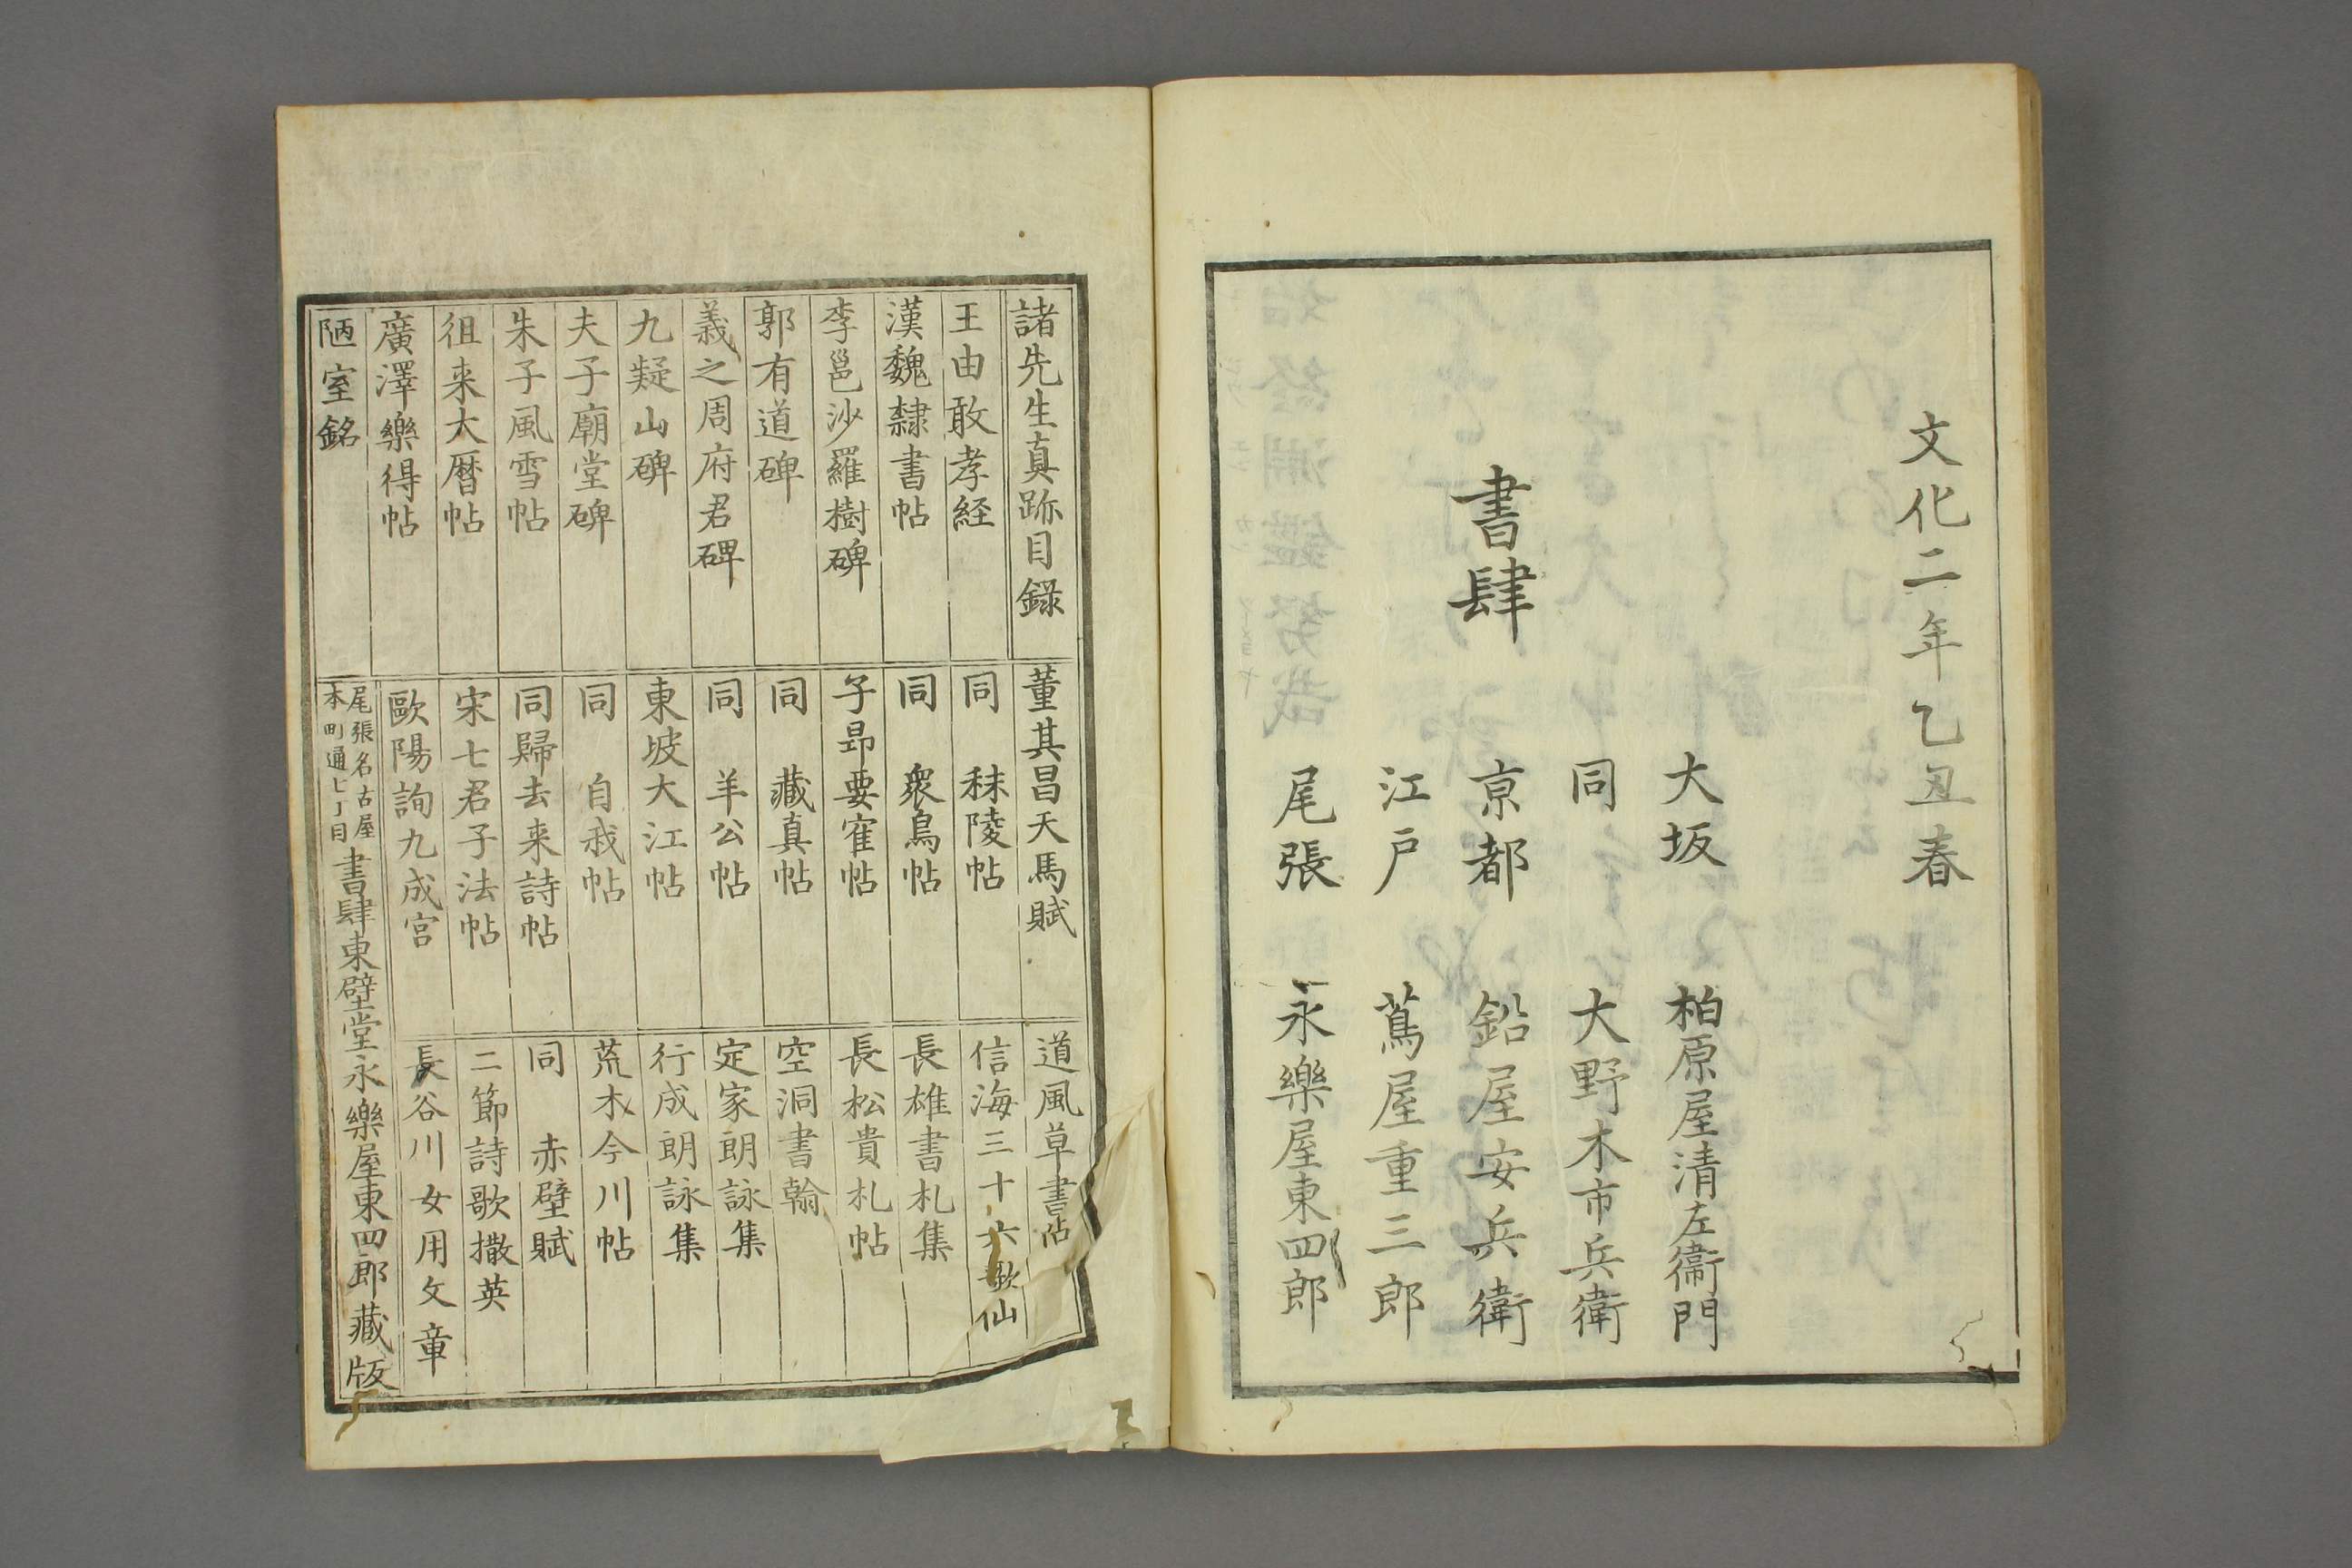 文化二年乙丑春
書肆
大坂 柏原屋清左衞門
同 大野木市兵衛
京都 鉛屋安兵衛
江戸 蔦屋重三郎
尾張 永樂屋東四郎
諸先生真跡目錄
王由敢孝経
漢魏隸書帖
李邕沙羅樹碑
郭有道碑
義之周府君碑
九疑山碑
夫子廟堂碑
朱子風雪帖
徂来大曆帖
廣澤樂得帖
陋室銘
董其昌天馬賦
同 秣陵帖
同 衆鳥帖
子昻要寉帖
同 藏真帖
同 羊公帖
東坡大江帖
同 自我帖
同歸去来詩帖
宋七君子法帖
歐陽詢九成宮
道風草書帖
信海三十六歌仙
長雄書札集
長松貴札帖
空洞書翰
定家朗詠集
行成朗詠集
荒木今川帖
同 赤壁賦
二節詩歌撒英
長谷川女用文章
尾張名古屋
本町通七丁目
書肆東壁堂永樂屋東四郎藏版